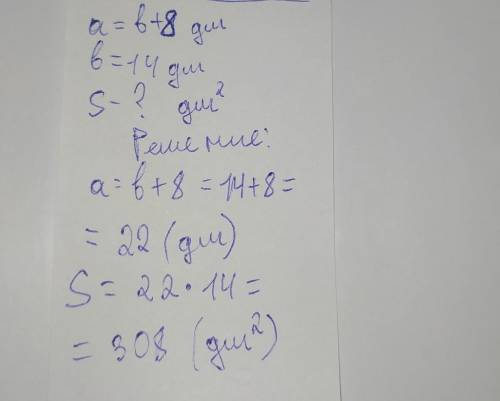 a = b+8 дм
b = 14 дм
S - ? дм²
Решение:
a = b + 8 = 14+8 =
= 22 (дм)
S = 22 · 14 =
= 308 (дм²)